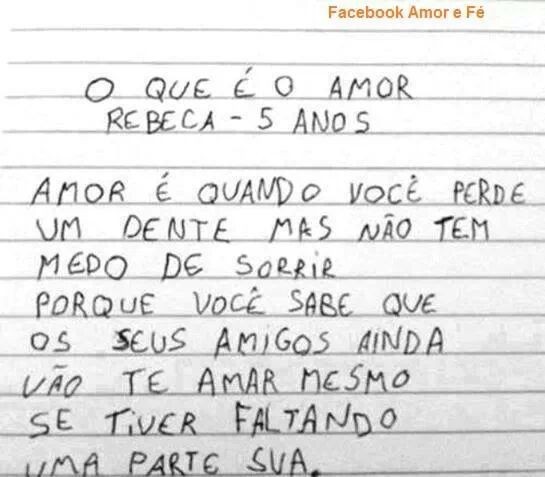 Facebook Amor e Fé
O QUE É O AMOR
REBECA - 5 ANOS
AMOR É QUANDO VOCÊ PERDE
UM DENTE MAS NÃO TEM
MEDO DE SORRIR
PORQUE VOCÊ SABE QUE
OS SEUS AMIGOS AINDA
VÃO TE AMAR MESMO
SE TIVER FALTANDO
UMA PARTE SUA.